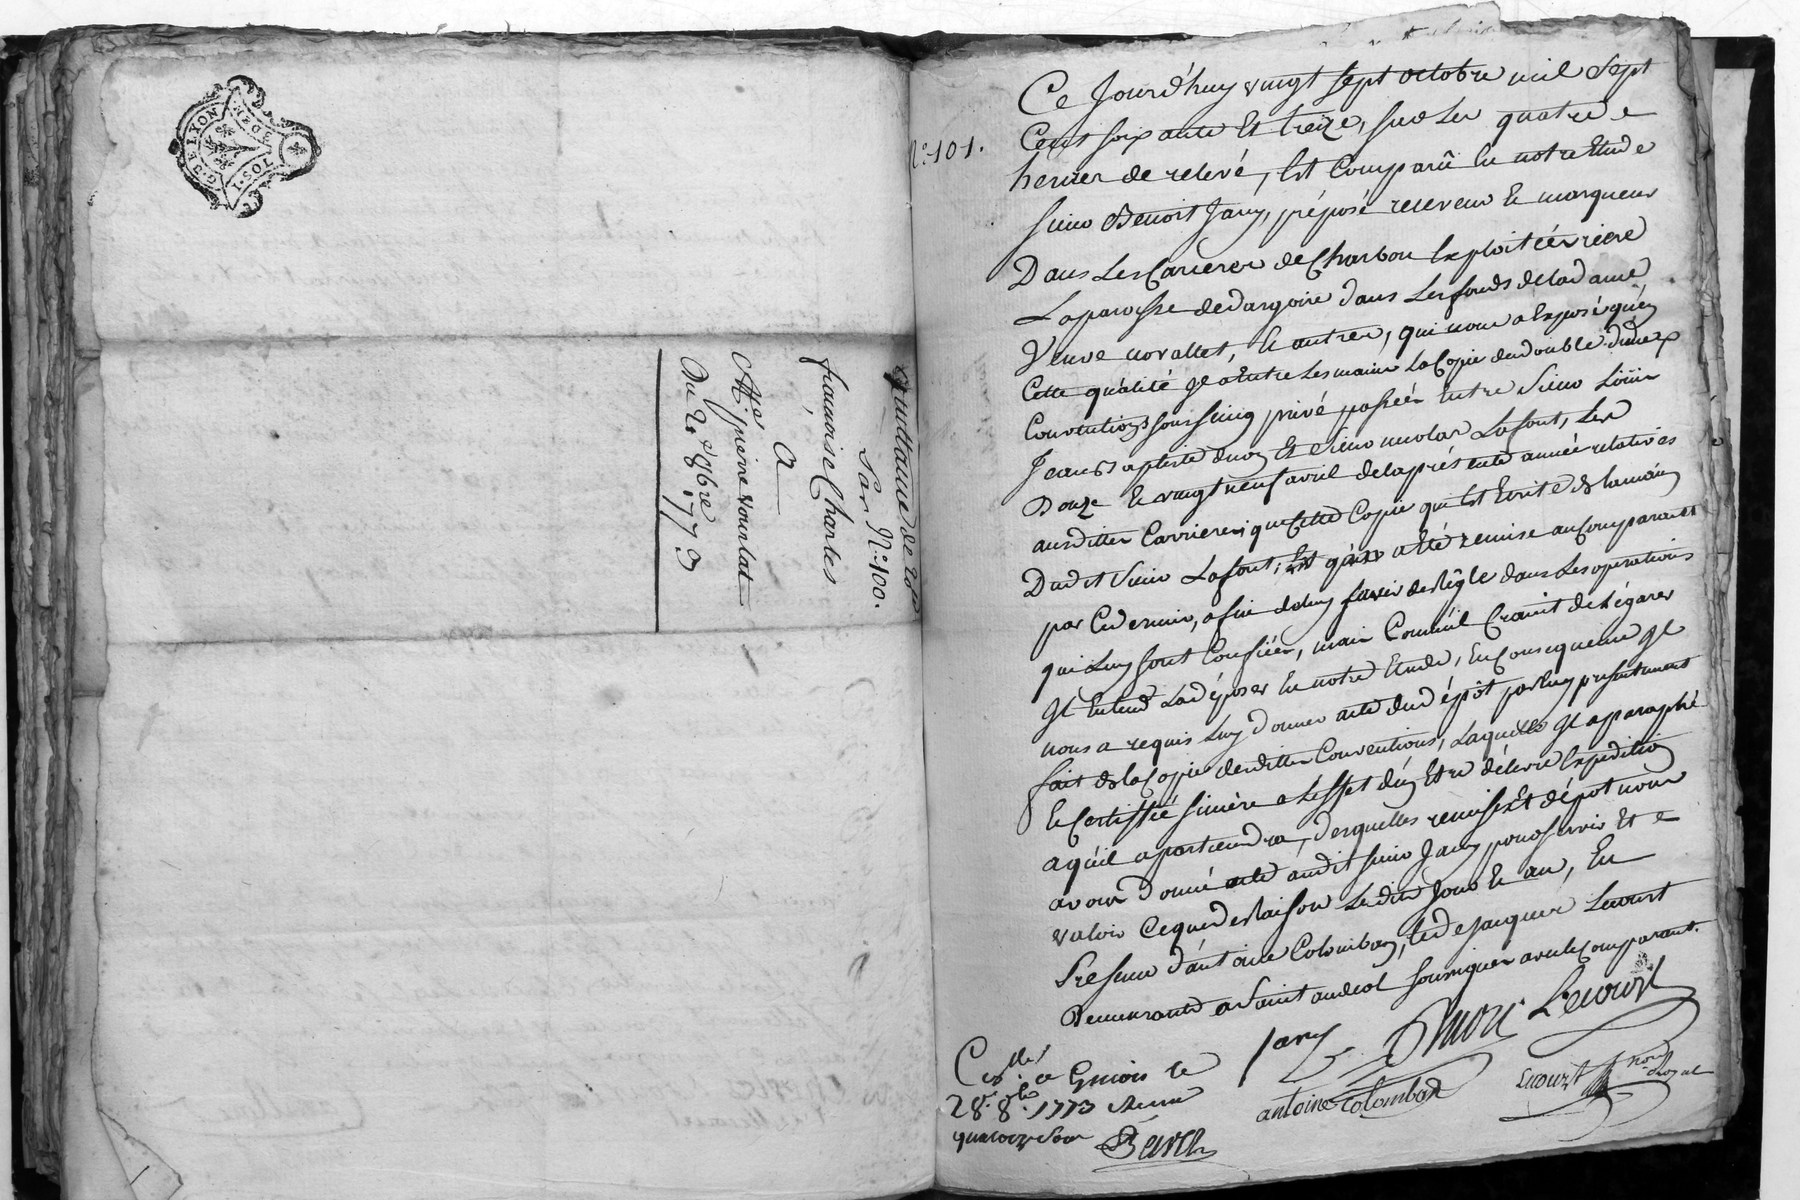 G.D.E LYON
1.SOL
quittance de 20#
Par N.º 100.
françoise Charles
à
À pierre vournat
Du 2.e 8bre 1773
N.º 101.
Ce Jourd'huy vingt sept octobre mil Sept
Cent soixante Et treize, sur Les quatre
heures de relevé, Est Comparû En notre Etude
sieur Benoit Jany, préposé receveur Et marqueur
Dans Les Carieres de Charbon Exploitées rière
La paroisse de dargoire dans Les fonds de la dame
Veuve novallet, Et autres, qui nous a Exposé qu'en
Cette qualité Jl a Entre Les mains La Copie du double de deux
Conventions sous seing privé passées Entre Sieur
Jean Baptiste duon Et Sieur nicolas Lafont, Les
Douze Et vingt neuf avril de la présente année relatives
ausdittes Carrieres, que Cette Copie qui Est Ecrite de la main
Dudit sieur Lafont, Et qui a Eté remise au Comparant
par Ce dernier, afin de luy servir de Règle dans Les operations
qui Luy sont Confiées, mais Comme il Craint de L'égarer
Jl Entend La déposer En notre Etude, En Consequence Jl
nous a requis Luy donner acte du dépôt par luy presentement
fait de la Copie desdittes Conventions, Laquelle Jl a paraphé
Et Certiffié sincère a L'effet d'en Etre délivré Expedition
a qu'il apartiendra, desquelles remise Et dépot nous
avons Donné acte audit sieur Jany pour servir Et
valoir Ce que de Raison Ledit Jour Et an, En
Presence d'antoine Colomban, Et de Jacques Lecourt
Demeurants a Saint andeol soussignés avec le Comparant.
Jany
Lecourt
antoine Colomban
Lecourt
no.re Royal
Con.llé a Givors le
28.e 8.bre 1773 Reçu
quatorze Sou